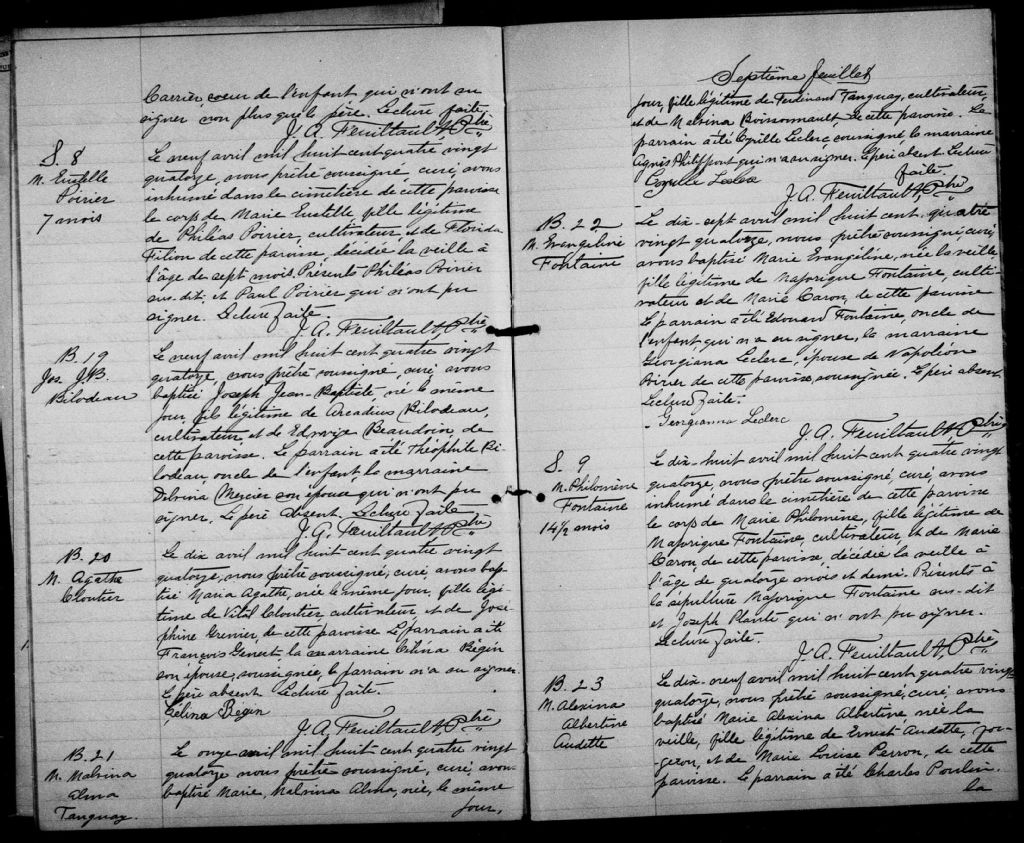 Carrier, soeur de l'enfant qui n'ont su
signer non plus que le père. Lecture faite,
J. A. Feuiltault, Ptre
S. 8
M. Eustelle
Poirier
7 mois
Le neuf avril mil huit cent quatre vingt
quatorze, nous prêtre soussigné, curé, avons
inhumé dans le cimetière de cette paroisse
le corps de Marie Eustelle, fille légitime
de Philéas Poirier, cultivateur et de Florida
Fition de cette paroisse, décédée la veille à
l'âge de sept mois. Présents Philéas Poirier
sus-dit, et Paul Poirier qui n'ont pu
signer. Lecture faite.
J. A. Feuiltault, Ptre
B. 19
Jos. J. B.
Bilodeau
Le neuf avril mil huit cent quatre vingt
quatorze, nous prêtre soussigné, curé avons
baptisé Joseph Jean-Baptiste, né le même
jour, fils légitime de Arcadius Bilodeau,
cultivateur, et de Edwige Beaudoin, de
cette paroisse. Le parrain a été Théophile Bi-
lodeau, oncle de l'enfant, la marraine
Delvina Mercier son épouse qui n'ont pu
signer. Le père absent. Lecture faite
J. A. Feuiltault, Ptre
B. 20
M. Agathe
Cloutier
Le dix avril mil huit cent quatre vingt
quatorze, nous prêtre soussigné, curé, avons bap-
tisé Maria Agathe, née le même jour, fille légi-
time de Vital Cloutier, cultivateur, et de José-
phine Grenier, de cette paroisse. Le parrain a été
François Genest, la marraine Célina Bégin
son épouse, soussignée, le parrain n'a su signer.
Le père absent. Lecture faite.
Célina Begin
J. A. Feuiltault, Ptre
B. 21
M. Malvina
Alma
Tanguay.
Le onze avril mil huit cent quatre vingt
quatorze nous prêtre soussigné, curé, avons
baptisé Marie, Malvina Alma, née, le même
jour,
Septième feuillet
jour, fille légitime de Ferdinand Tanguay, cultivateur,
et de Malvina Boissonnault de cette paroisse. Le
parrain a été Cyrille Leclerc, soussigné, la marraine
Agnès Philippont qui n'a su signer. Le père absent. Lecture
faite.
Cyrille Leclerc
J. A. Feuiltault, Ptre
B. 22
M. Evangeline
Fontaine
Le dix-sept avril mil huit cent quatre
vingt quatorze, nous prêtre soussigné, curé,
avons baptisé Marie Evangéline, née la veille
fille légitime de Majorique Fontaine, culti-
vateur et de Marie Caron, de cette paroisse
Le parrain a été Edouard Fontaine, oncle de
l'enfant, qui n'a su signer, la marraine
Georgiana Leclerc, épouse de Napoléon
Poirier de cette paroisse, soussignée. Le père absent.
Lecture faite.
Georgianna Leclerc
J. A. Feuiltault, Ptre
S. 9
M. Philomène
Fontaine
14 1/2 mois
Le dix-huit avril mil huit cent quatre vingt
quatorze, nous prêtre soussigné, curé, avons
inhumé dans le cimetière de cette paroisse
le corps de Marie Philomène, fille légitime de
Majorique Fontaine, cultivateur, et de Marie
Caron, de cette paroisse, décédée la veille à
l'âge de quatorze mois et demi. Présents à
la sépulture Majorique Fontaine sus-dit
et Joseph Plante qui n'ont pu signer.
Lecture faite.
J. A. Feuiltault, Ptre
B. 23
M. Alexina
Albertine
Audette
Le dix-neuf avril mil huit cent quatre vingt
quatorze, nous prêtre soussigné, curé, avons
baptisé Marie Alexina Albertine, née la
veille, fille légitime de Ernest Audette, for-
geron, et de Marie Louise Perron, de cette
paroisse. Le parrain a été Charles Poulin.
la